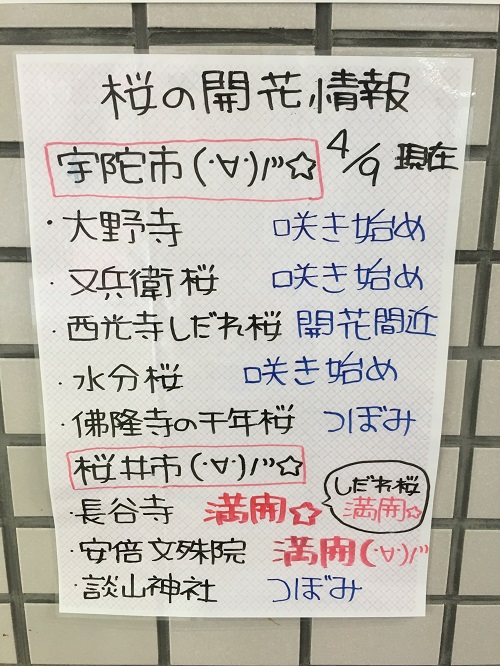 桜の開花情報
宇陀市(･∀･)ﾉ"☆ 4/9 現在
・大野寺 咲き始め
・又兵衛桜 咲き始め
・西光寺しだれ桜 開花間近
・水分桜 咲き始め
・佛隆寺の千年桜 つぼみ
桜井市(･∀･)ﾉ"☆
しだれ桜
満開☆
・長谷寺 満開☆
・安倍文殊院 満開(･∀･)ﾉ"
・談山神社 つぼみ